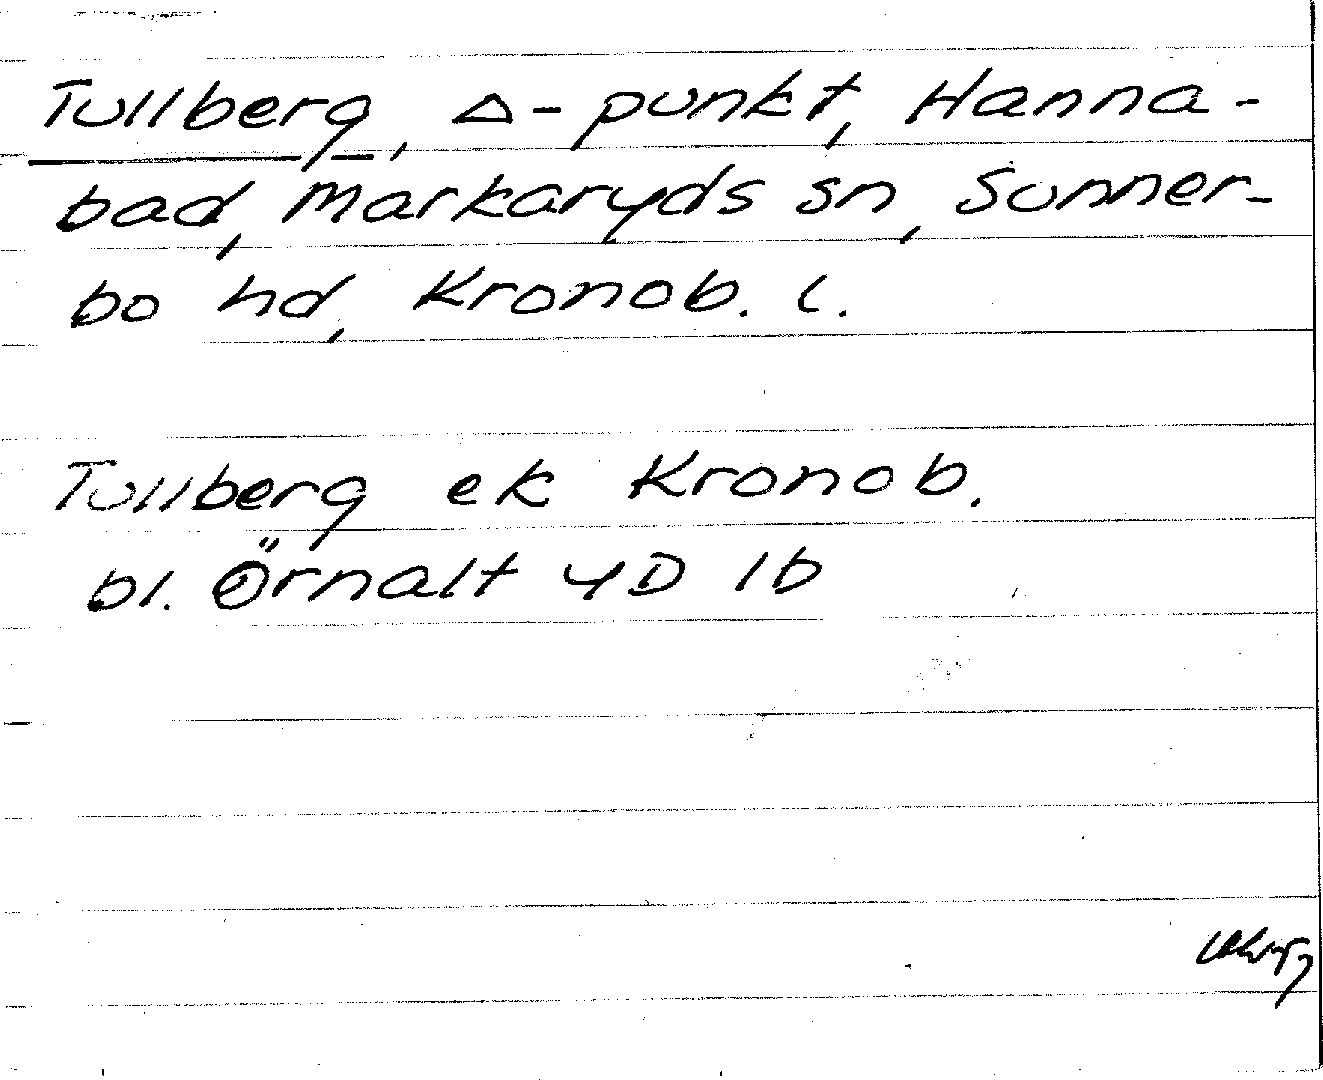 Tullberg, Δ-punkt, Hanna-
bad, Markaryds sn, Sunner-
bo hd, Kronob. l.
Tullberg ek Kronob.
bl. Örnalt 4D 1b